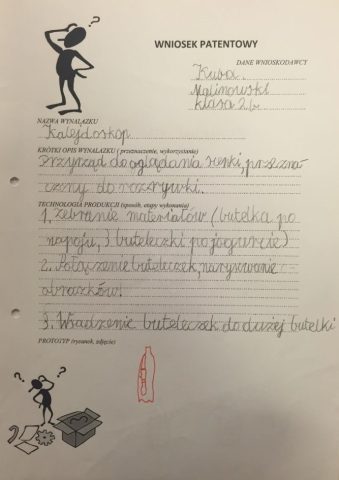 WNIOSEK PATENTOWY
DANE WNIOSKODAWCY
Kuba
Malinowski
klasa 2b
NAZWA WYNALAZKU
Kalejdoskop
KRÓTKI OPIS WYNALAZKU ( przeznaczenie, wykorzystanie)
Przyrząd do oglądania scenki, przezna
czony do rozrywki.
TECHNOLOGIA PRODUKCJI (sposób, etapy wykonania)
1. Zebranie materiałów (butelka po
napoju, 3 buteleczki po jogurcie)
2. Połączenie buteleczek, narysowanie
obrazków.
3. Wsadzenie buteleczek do dużej butelki
PROTOTYP (rysunek, zdjęcie)
? ?
? ?